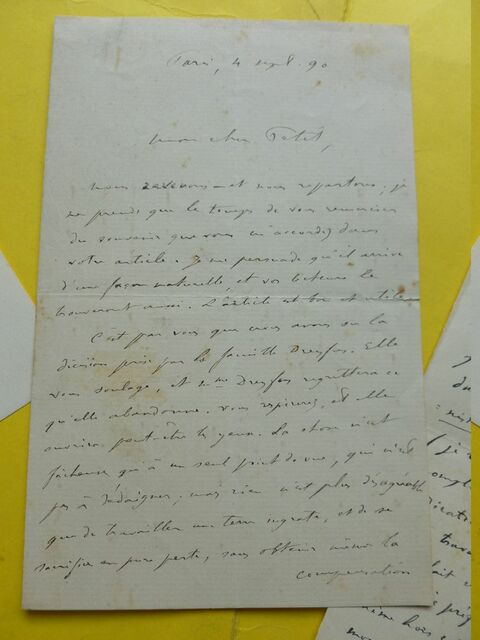 Paris, 4 sept. 90
Mon cher Petit,
Nous arrivons et nous repartons, je
ne prends que le temps de vous remercier
du souvenir que vous m'accordez dans
votre article. Je me persuade qu'il arrive
d'une façon naturelle, et vos lecteurs le
trouveront aussi. L'article est bon et utile.
C'est par vous que nous avons su la
décision prise par la famille Dreyfus. Elle
vous soulage, et Mme Dreyfus regrettera ce
qu'elle abandonne. Vous respirerez, et elle
ouvrira peut-être les yeux. La chose n'est
fâcheuse qu'à un seul point de vue, qui n'est
pas à dédaigner, mais rien n'est plus désagréable
que de travailler une terre ingrate, et de se
sacrifier en pure perte, sans obtenir même la
compensation